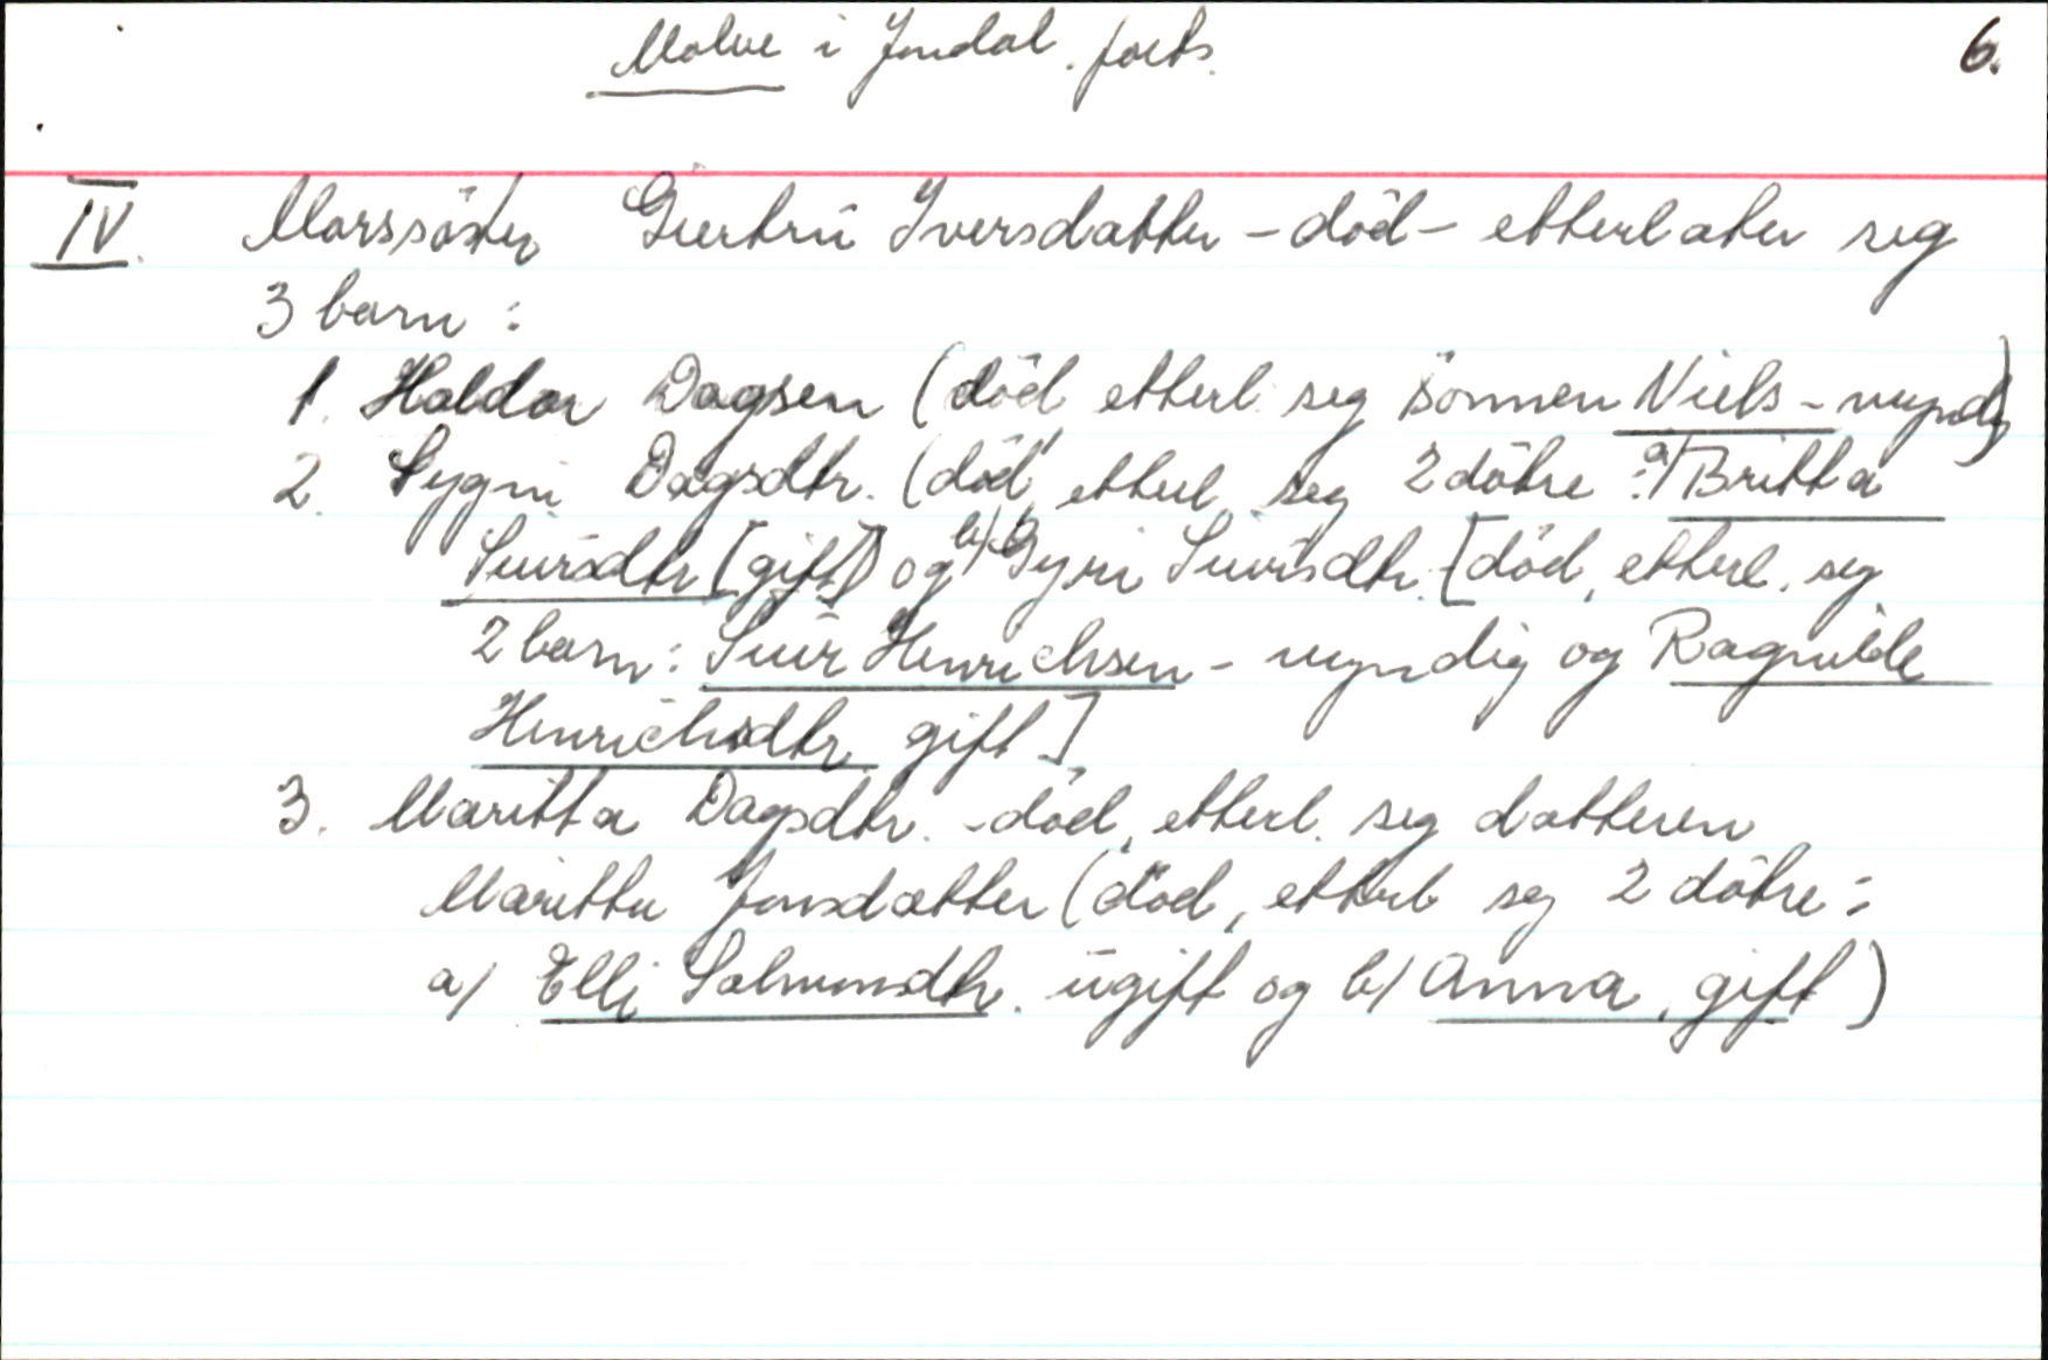 Molve i Jondal. forts. 6.
IV. Morssöster Giertrü Iversdatter - död - etterlater seg
3 barn :
1. Haldor Dagsen (död etterl. seg sönnen Niels - myndig)
2. Sygni Dagsdtr. (död, etterl. seg 2 dötre : a/ Britta
Siursdtr [gift]) og b/ Gyri Siursdtr. [död, etterl. seg
2 barn: Siur Henrichsen - myndig og Ragnilde
Henrichsdtr. gift]
3. Maritta Dagsdtr. - död, etterl. seg datteren
Maritta Jonsdatter (död, etterl seg 2 dötre :
a/ Elli Salmonsdtr. ügift og b/ Anna, gift)